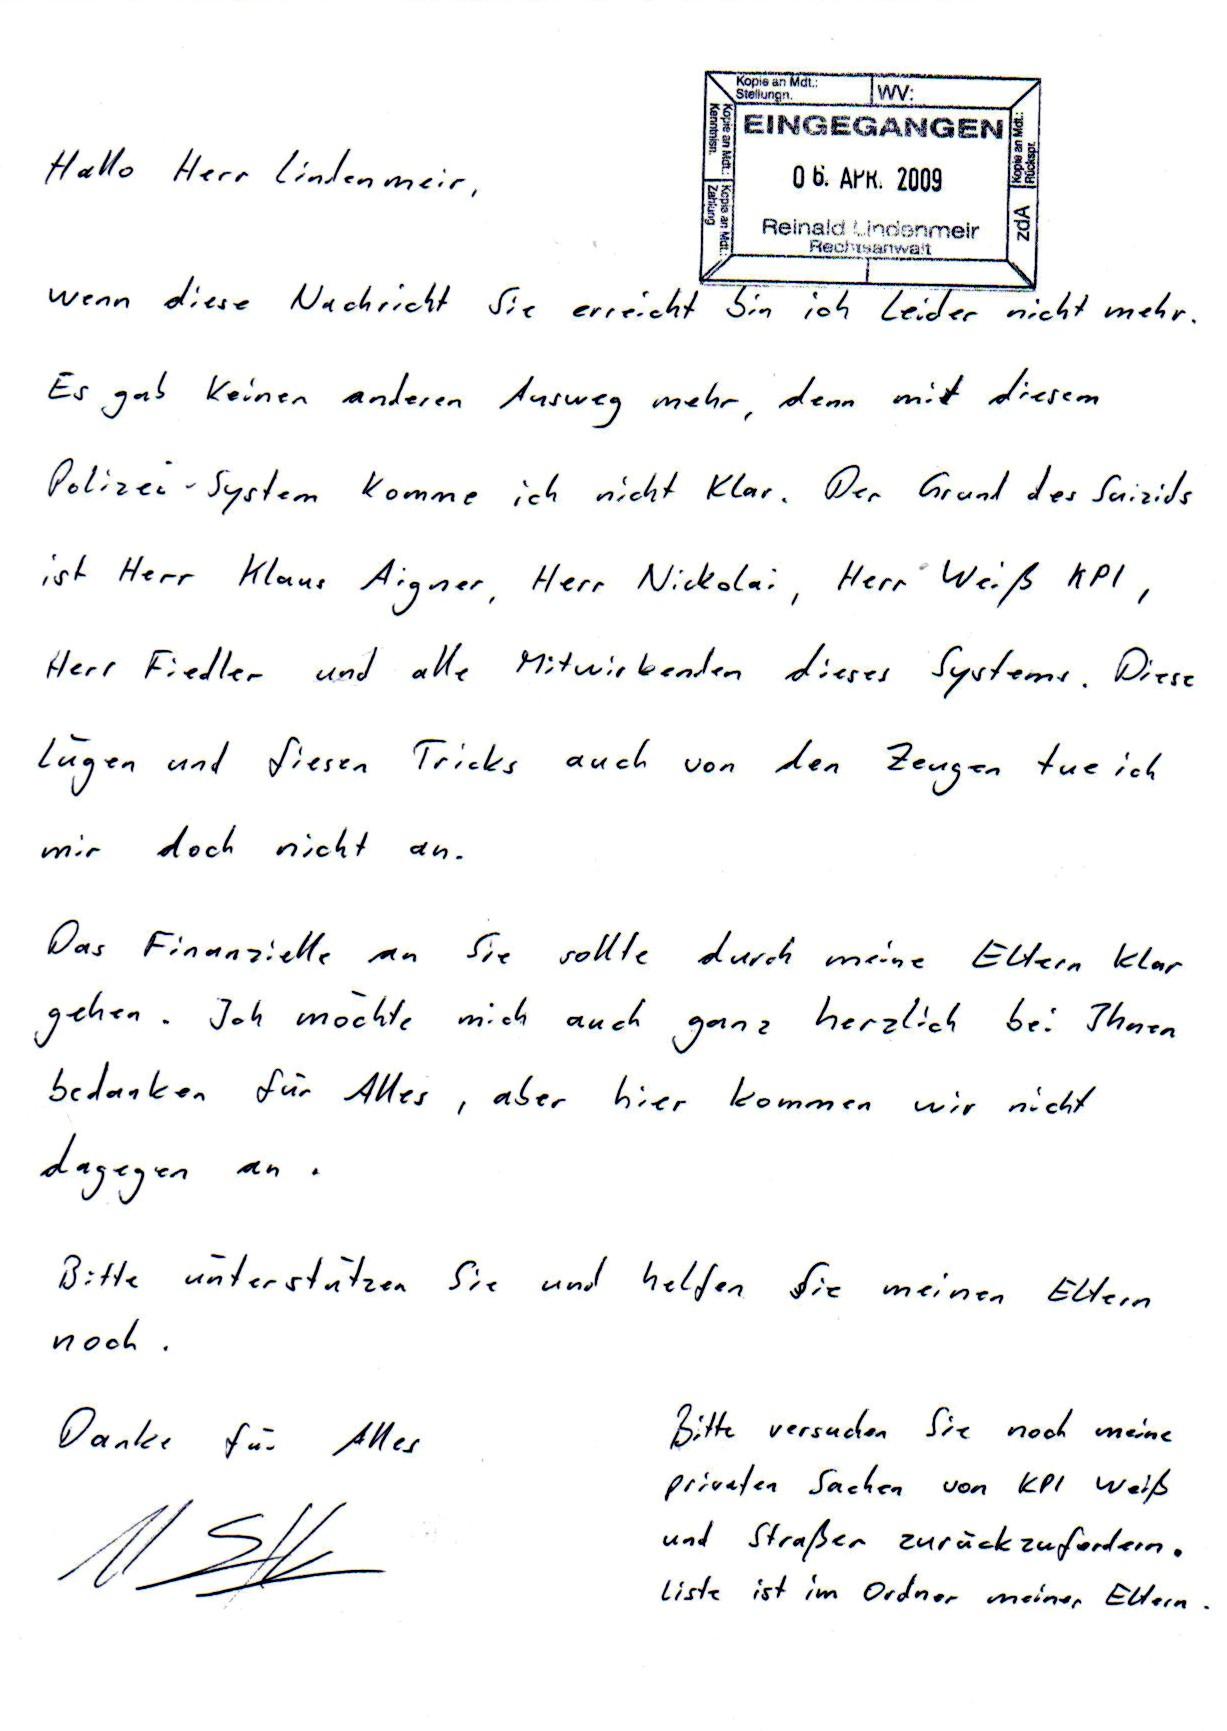 Kopie an Mdt.: Stellungn.
WV:
Kopie an Mdt.: Kenntnisn.
Kopie an Mdt.: Zahlung
Kopie an Mdt.: Rückspr.
zdA
EINGEGANGEN
06. APR. 2009
Reinald Lindenmeir
Rechtsanwalt
Hallo Herr Lindenmeir,
wenn diese Nachricht Sie erreicht bin ich leider nicht mehr.
Es gab keinen anderen Ausweg mehr, denn mit diesem
Polizei-System komme ich nicht klar. Der Grund des Suizids
ist Herr Klaus Aigner, Herr Nickolai, Herr Weiß KPI,
Herr Fiedler und alle Mitwirkenden dieses Systems. Diese
Lügen und fiesen Tricks auch von den Zeugen tue ich
mir doch nicht an.
Das Finanzielle an Sie sollte durch meine Eltern klar
gehen. Ich möchte mich auch ganz herzlich bei Ihnen
bedanken für Alles, aber hier kommen wir nicht
dagegen an.
Bitte ünterstützen Sie und helfen Sie meinen Eltern
noch.
Danke für Alles
Bitte versuchen Sie noch meine
privaten Sachen von KPI Weiß
und Straßer zurückzufordern.
Liste ist im Ordner meiner Eltern.